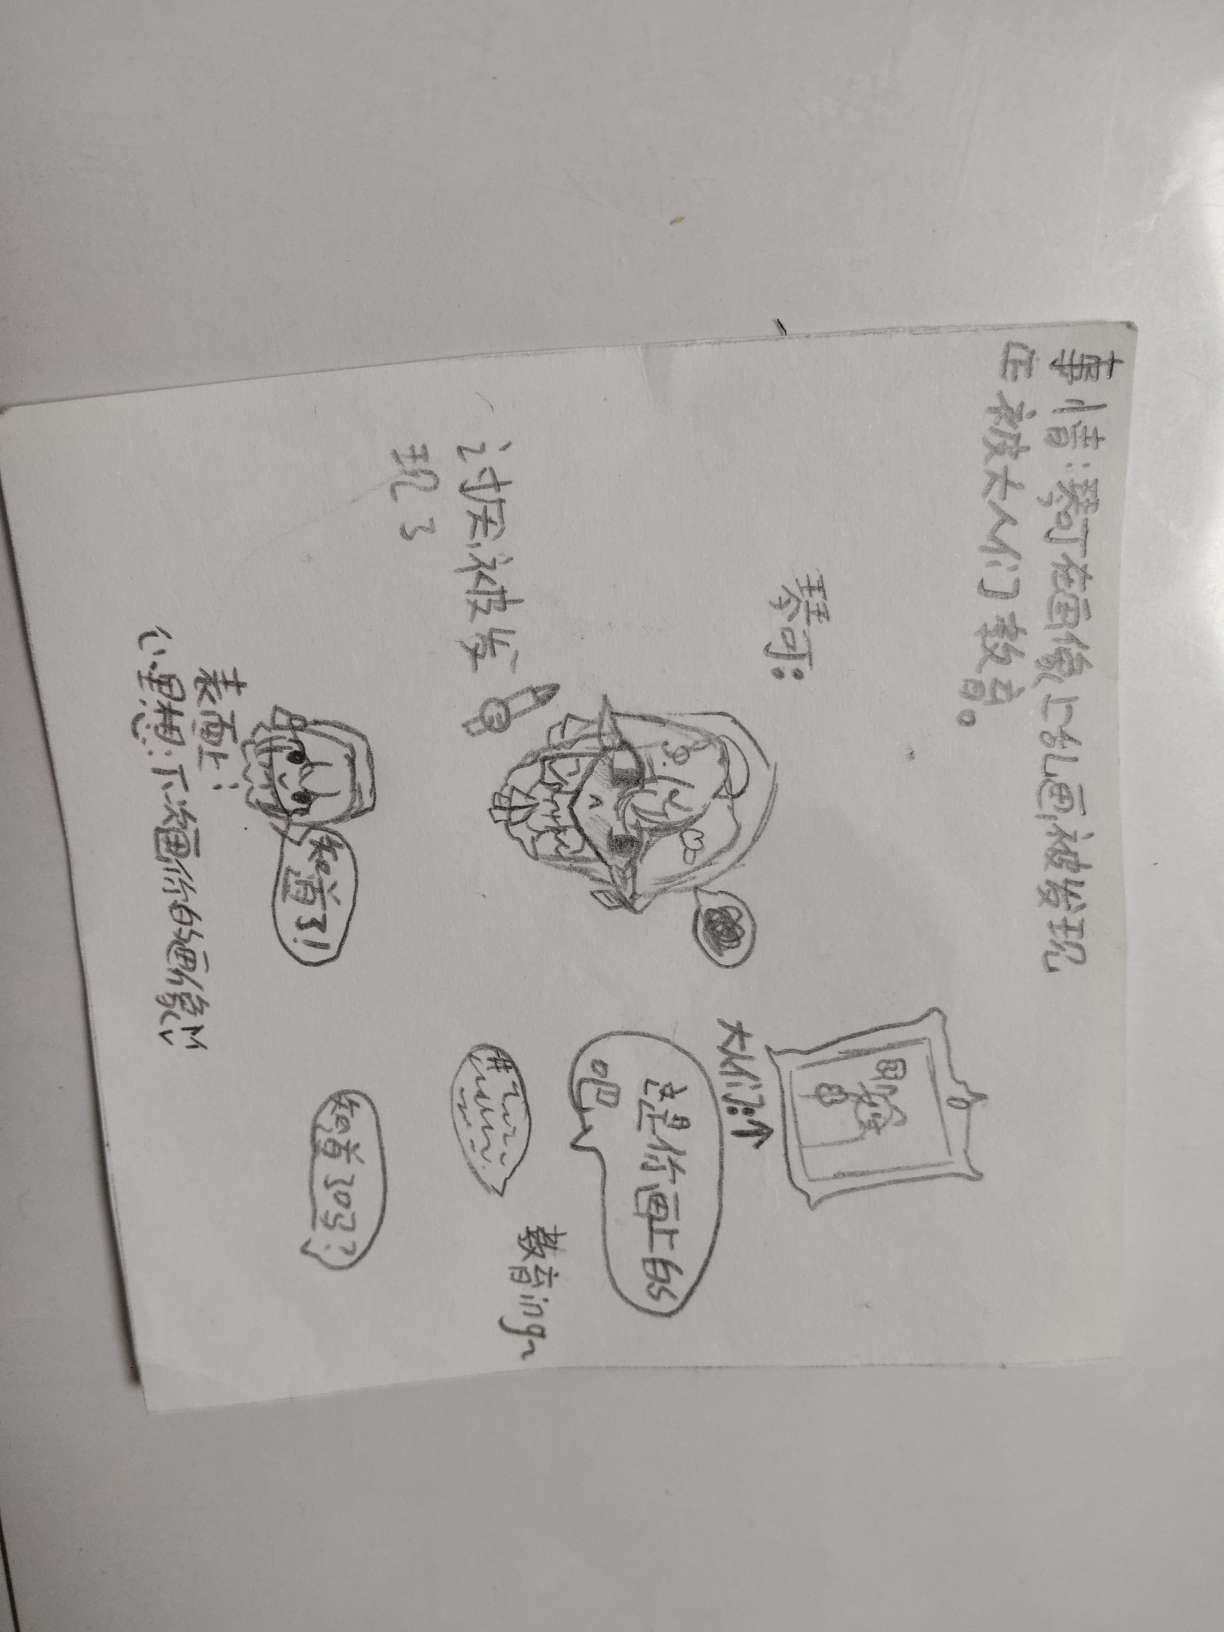 事情：琴可在画像上乱画被发现
正被大人们教育。
琴可：
大人们：↑
这是你画上的
吧
教育ing~
过后被发
现了
知道了吗？
知道了！
表面上：
心里想：下次画你的画像